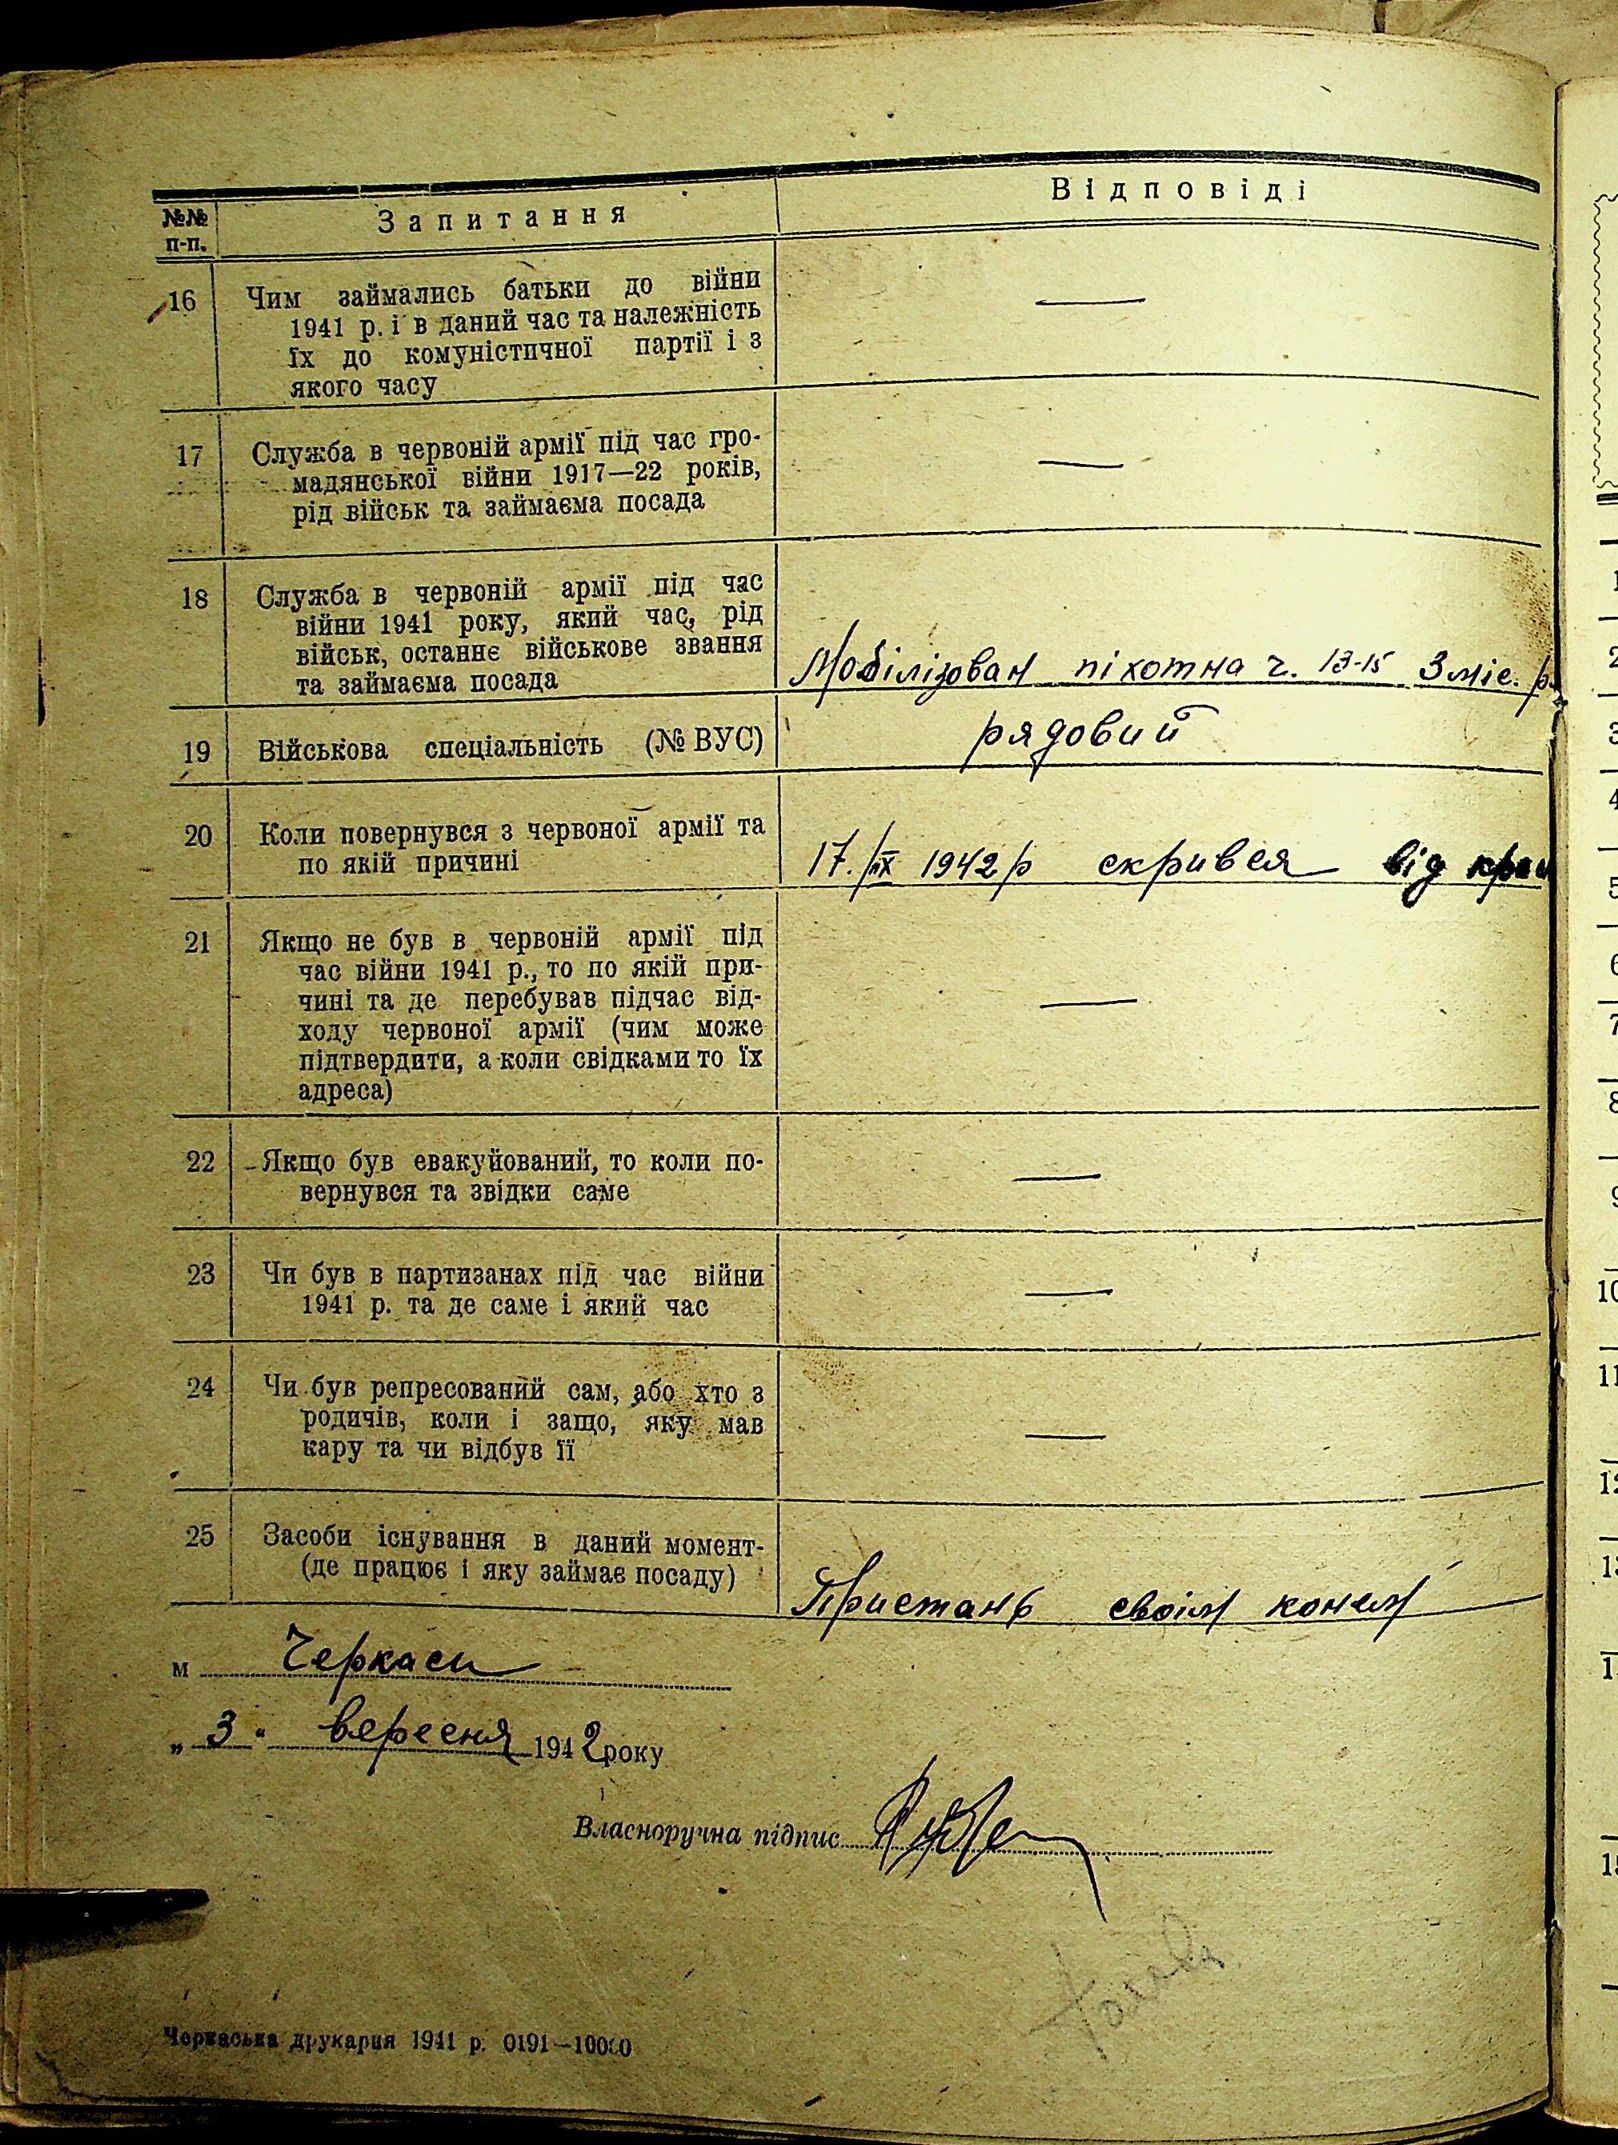 №№ п-п.
Запитання
Відповіді
16
Чим займались батьки до війни
1941 р. і в даний час та належність
їх до комуністичної партії і з
якого часу
—
17
Служба в червоній армії під час гро-
мадянської війни 1917—22 років,
рід військ та займаєма посада
—
18
Служба в червоній армії під час
війни 1941 року, який час, рід
військ, останнє військове звання
та займаєма посада
Мобілізован піхотна ч. 13-15 3 міс.
19
Військова спеціальність (№ ВУС)
рядовий
20
Коли повернувся з червоної армії та
по якій причині
17./IX 1942 р скрився від
21
Якщо не був в червоній армії під
час війни 1941 р., то по якій при-
чині та де перебував підчас від-
ходу червоної армії (чим може
підтвердити, а коли свідками то їх
адреса)
—
22
Якщо був евакуйований, то коли по-
вернувся та звідки саме
—
23
Чи був в партизанах під час війни
1941 р. та де саме і який час
—
24
Чи був репресований сам, або хто з
родичів, коли і защо, яку мав
кару та чи відбув її
—
25
Засоби існування в даний момент
(де працює і яку займає посаду)
Пристань своїм конем
м Черкаси
„ 3 " вересня 1942 року
Власноручна підпис
Черкаська друкарня 1941 р. 0191—10000